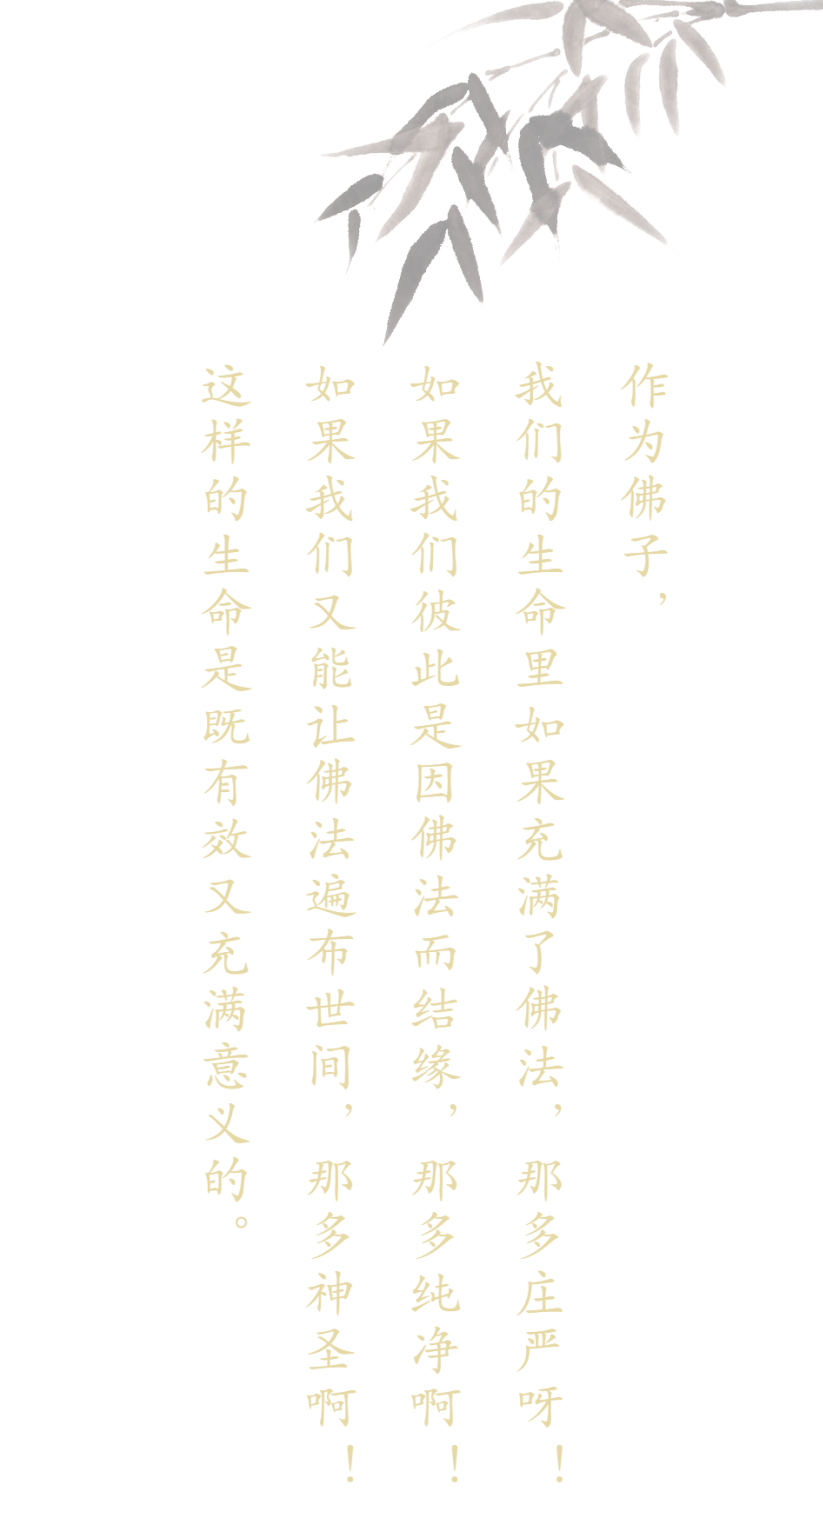 作为佛子，
我们的生命里如果充满了佛法，那多庄严呀！
如果我们彼此是因佛法而结缘，那多纯净啊！
如果我们又能让佛法遍布世间，那多神圣啊！
这样的生命是既有效又充满意义的。